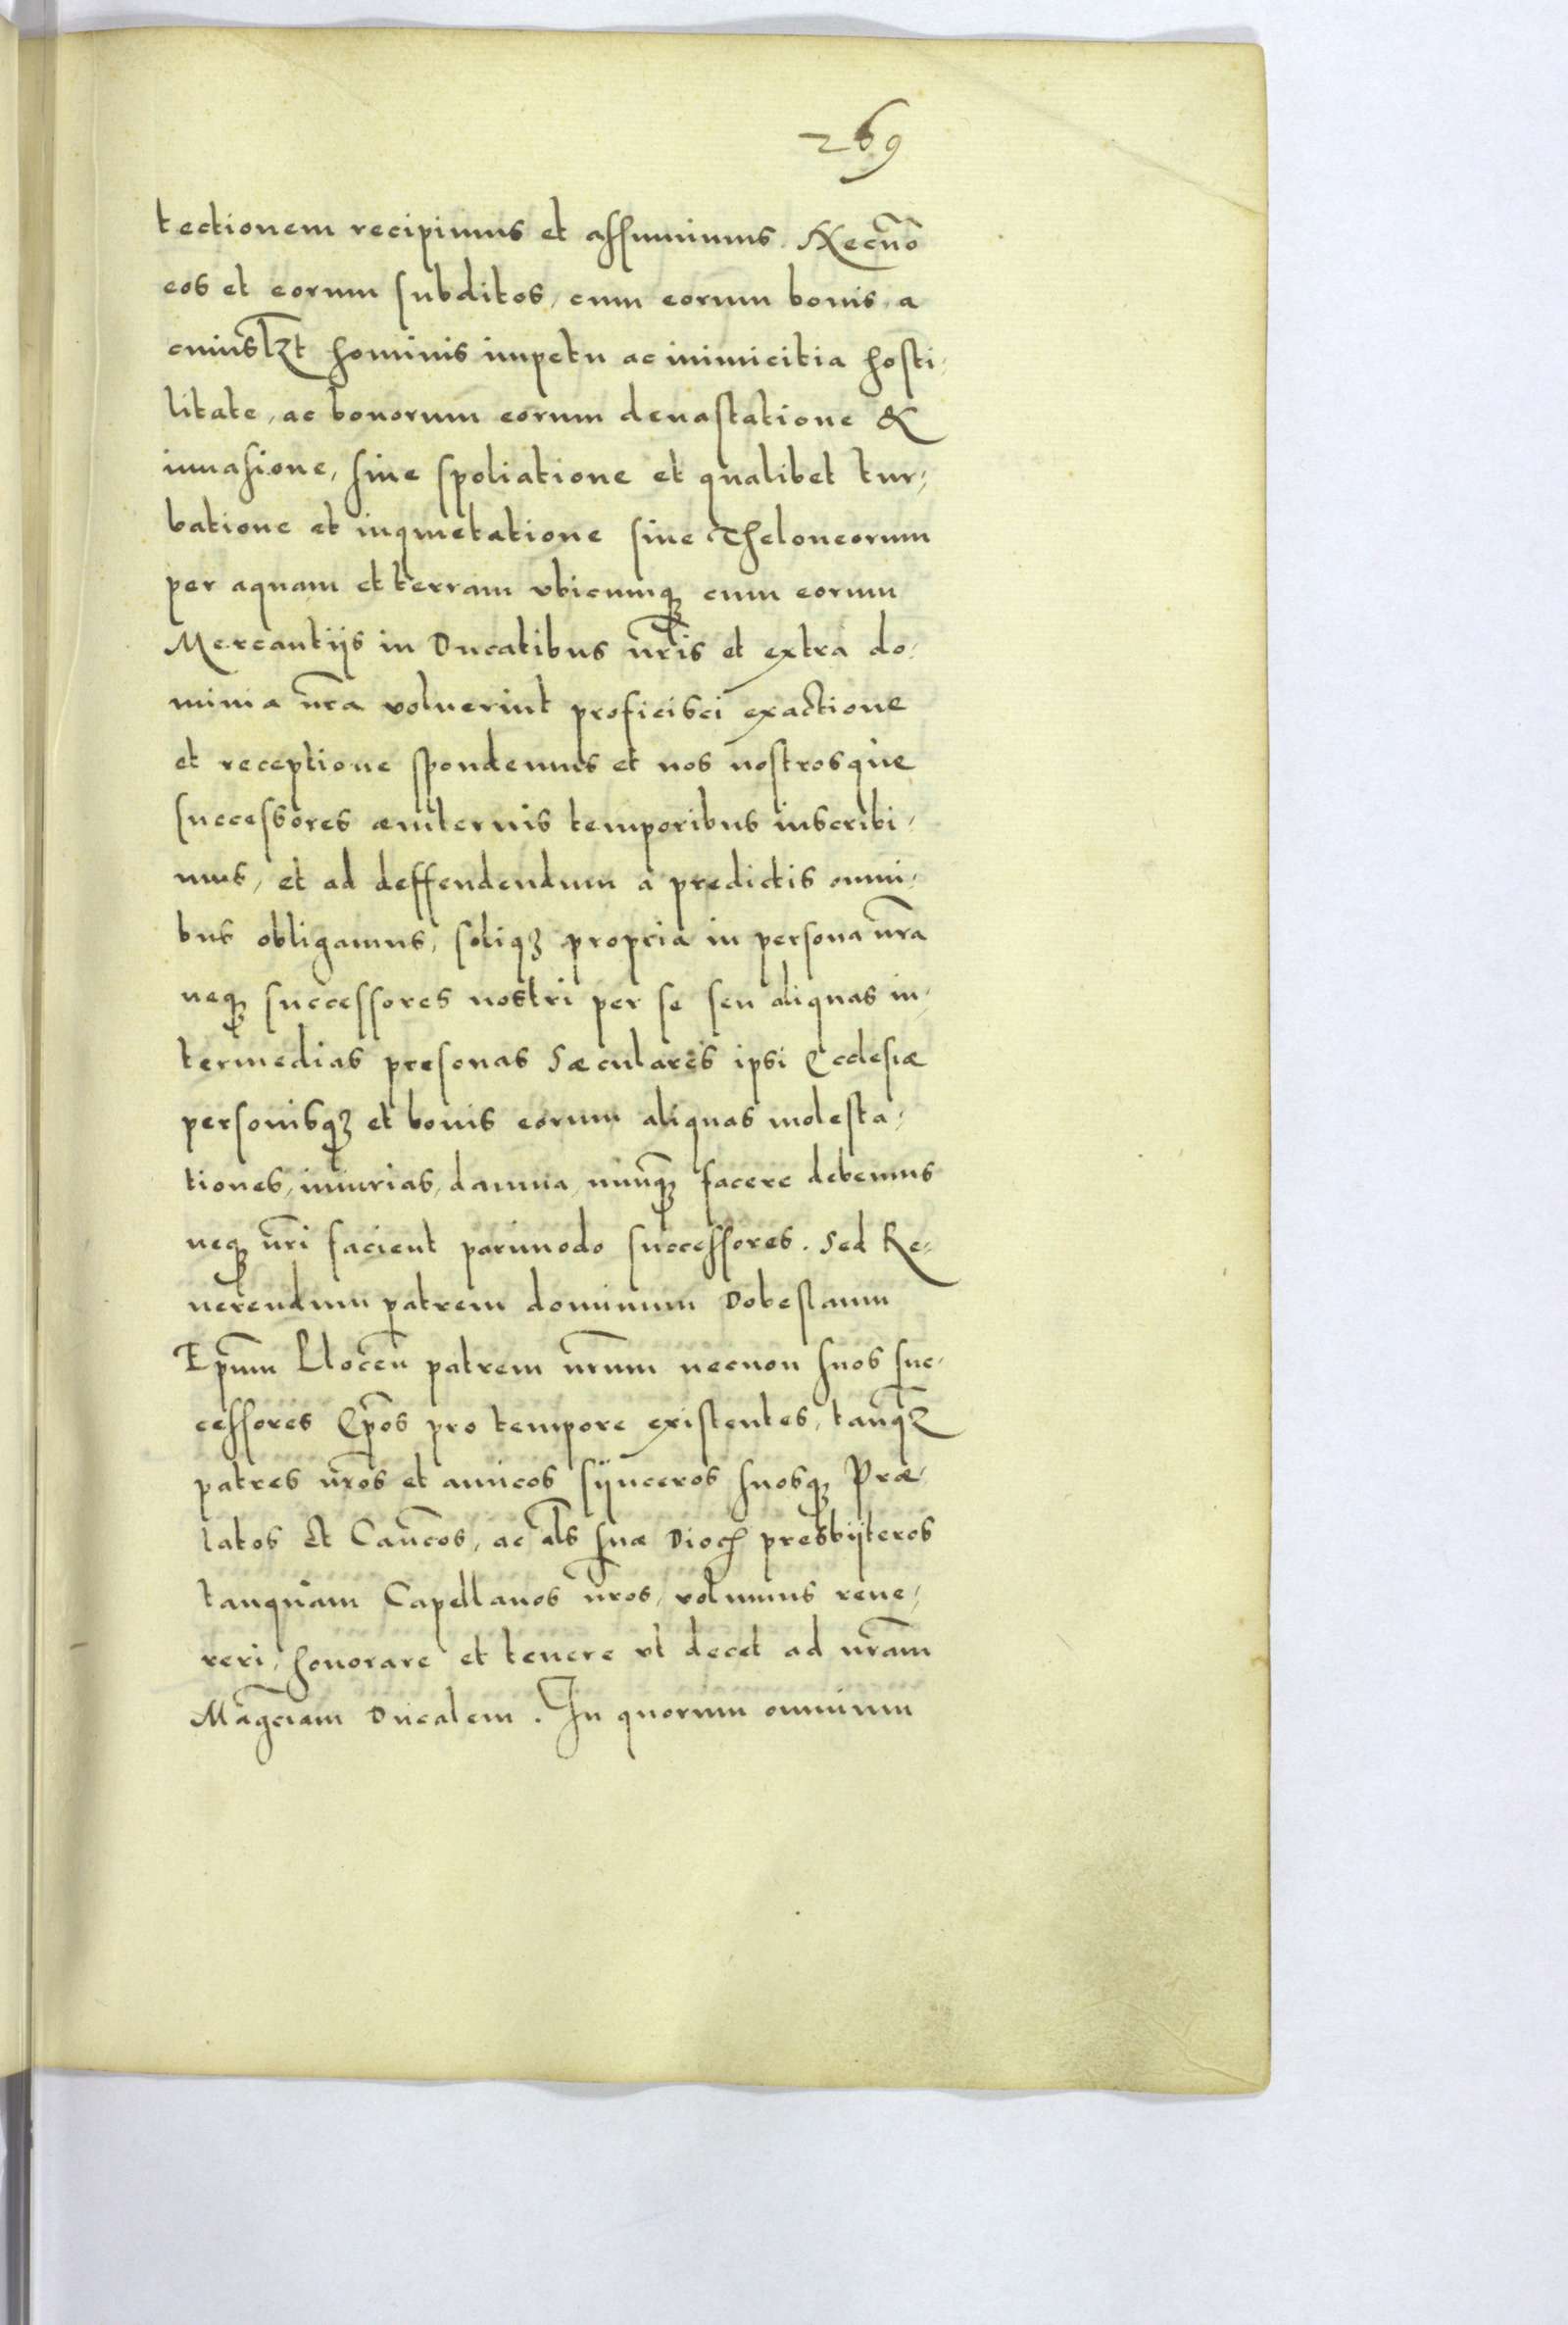 269
tectionem recipimus et assumimus. Necno͂
eos et eorum subditos, cum eorum bonis a
cuiuslꝫt hominis impetu ac inimicitia hosti-
litate, ac bonorum eorum deuastatione &
inuasione, siue spoliatione et qualibet tur-
batione et inquietatione siue Theloneorum
per aquam et terram vbicumqꝫ cum eorum
Mercantijs in Ducatibus nr̃is et extra do-
minia nr̃a voluerint proficisci exactione
et receptione spondemus et nos nostrosque
successores æuiternis temporibus inscribi-
mus, et ad deffendendum à predictis omni-
bus obligamus, soliqꝫ propria in persona nr̃a
neqꝫ successores nostri per se seu aliquas in-
termedias presonas Sæculares ipsi Ecclesiæ
personisqꝫ et bonis eorum aliquas molesta-
tiones, iniurias, damna, nunqꝫ facere debemus
neqꝫ nr̃i facient parimodo successores. Sed Re-
uerendum patrem dominum Dobeslaum
Ep̃um Plocen̄ patrem nr̃um necnon suos suc-
cessores Ep̃os pro tempore existentes, tanqꝫ
patres nr̃os et amicos sÿnceros suosqꝫ Præ-
latos et Can̄cos, ac al̃s suæ Dioc̄ presbÿteros
tanquam Capellanos nr̃os, volumus reue-
reri, honorare et tenere vt decet ad nr̃am
Mag̃ciam Ducalem. In quorum omnium